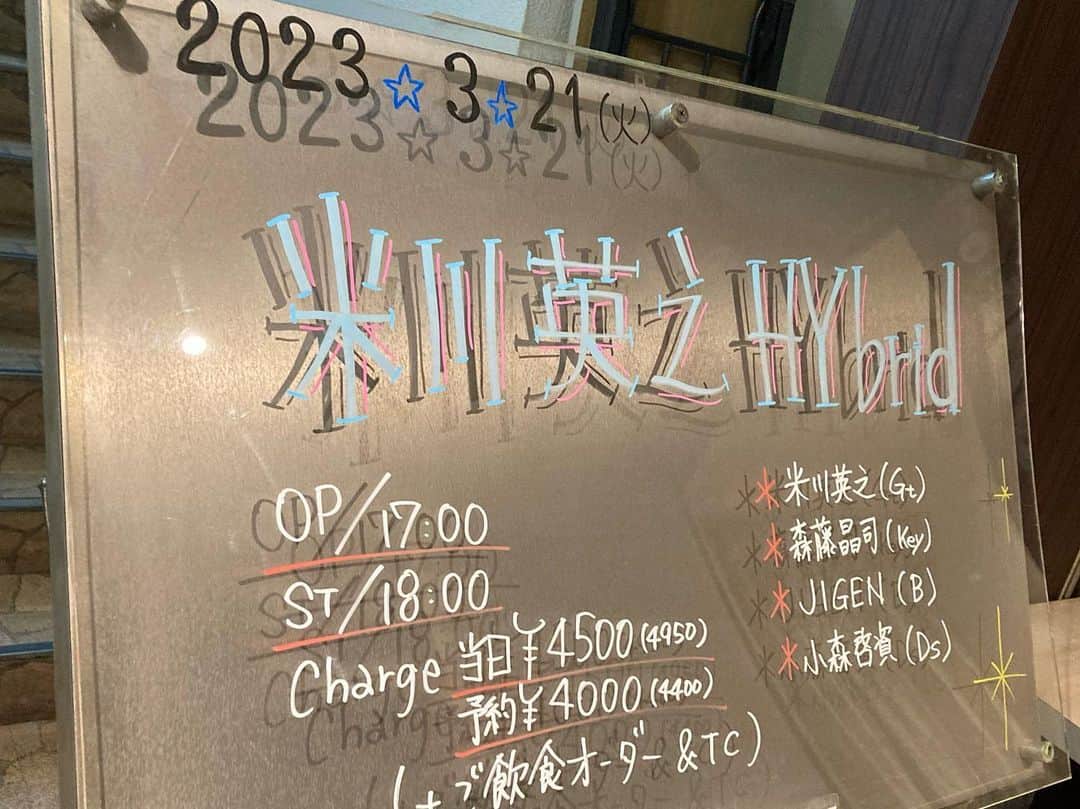 2023☆3☆21(火)
米川英之 HYbrid
OP/17:00
ST/18:00
Charge 当日¥4500(4950)
予約¥4000(4400)
(+ご飲食オーダー&TC)
*米川英之(Gt)
*森藤晶司(Key)
*JIGEN(B)
*小森啓資(Ds)